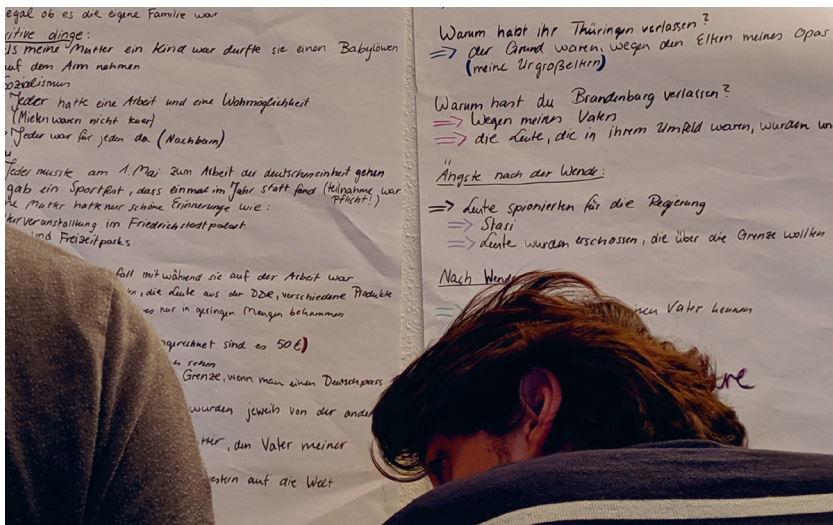 egal ob es die eigene Familie war
sitive dinge:
ls meine Mutter ein Kind war durfte sie einen Babylöwen
auf dem Arm nehmen
Sozialismus
Jeder hatte eine Arbeit und eine Wohnmöglichkeit
(Mieten waren nicht teuer)
Jeder war für jeden da (Nachbarn)
Jeder musste am 1. Mai zum Arbeit der deutscheneinheit gehen
gab ein Sportfest, dass einmal im Jahr statt fand (teilnahme war Pflicht!)
Mutter hatte nur schöne Erinnerunge wie:
turveranstaltung im Friedrichstadtpalast
und Freizeitparks
fall mit während sie auf der Arbeit war
n, die Leute aus der DDR, verschiedene Produkte
es nur in geringen Mengen bekammen
gerechnet sind es 50 €)
sehn
Grenze, wenn man einen Deutschpass
wurden jeweils von der ander
tter, den Vater meiner
estern auf die Welt
Warum habt ihr Thüringen verlassen?
⇒ der Grund waren, wegen den Eltern meines Opas
(meine Urgroßeltern)
Warum hast du Brandenburg verlassen?
⇒ Wegen meines Vaters
⇒ die Leute, die in ihrem Umfeld waren, wurden un
Ängste nach der Wende:
⇒ Leute spionierten für die Regierung
⇒ Stasi
⇒ Leute wurden erschossen, die über die Grenze wollten
Nach Wende
nen Vater kennen
re